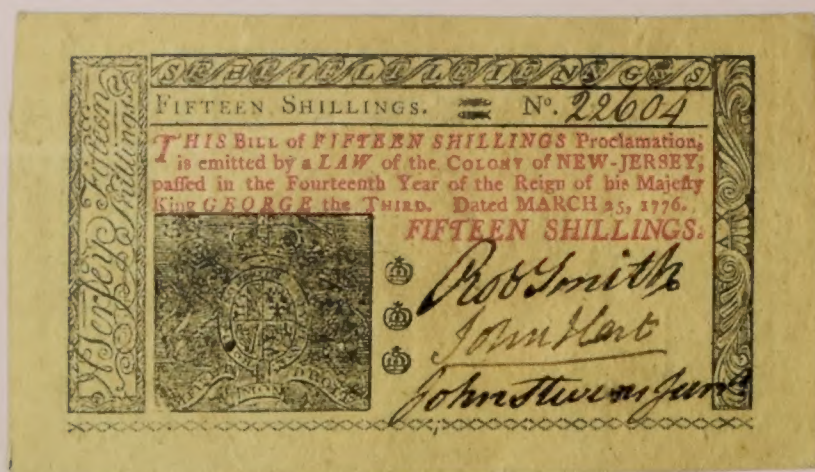 FIFTEEN SHILLINGS. No. 22604
THIS BILL of FIFTEEN SHILLINGS Proclamation,
is emitted by a LAW of the COLONY of NEW-JERSEY,
paſſed in the Fourteenth Year of the Reign of his Majeſty
King GEORGE the THIRD. Dated MARCH 25, 1776.
FIFTEEN SHILLINGS.
Rob Smith
John Hart
John Stevens Junr
N Jerſey Fifteen
Shillings